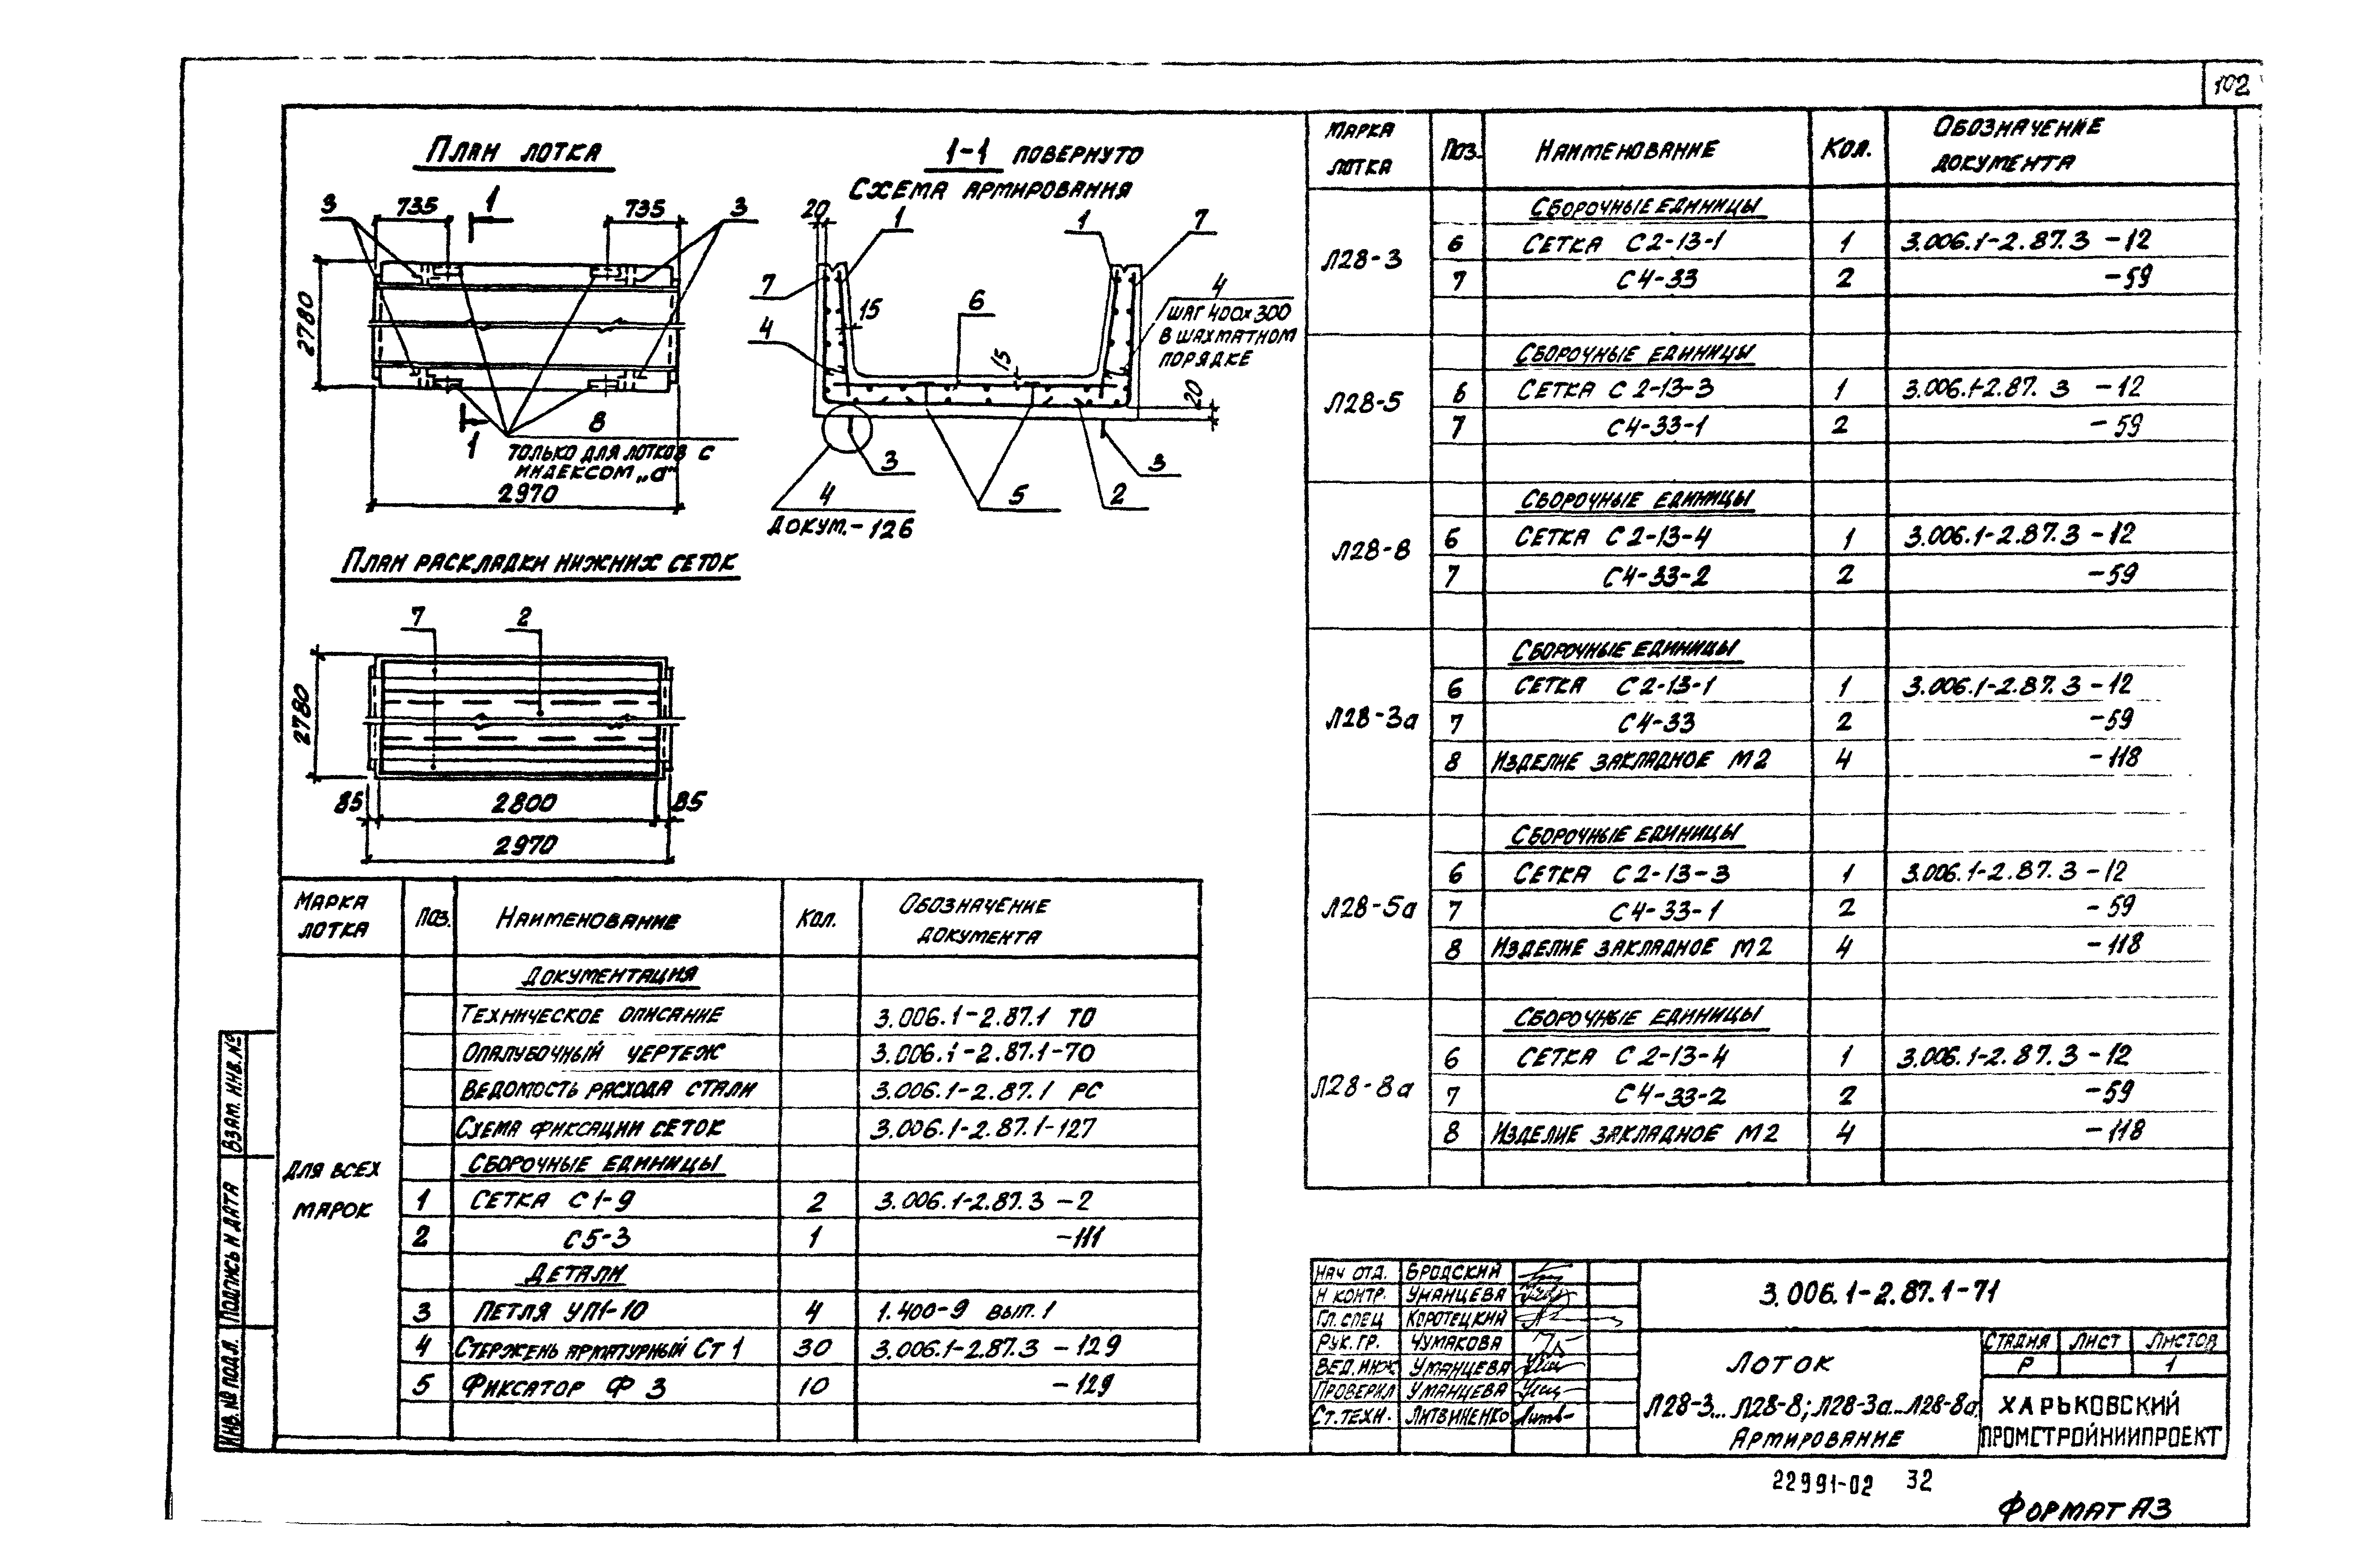 102
План лотка
3 735 1 735 3
2780
8
только для лотков с
индексом „а"
1
2970
1-1 повернуто
Схема армирования
20 1 1 7
7 15 6 15 4
шаг 400х300
в шахматном
порядке
4
20
3 3
4 5 2
докум.-126
План раскладки нижних сеток
7 2
2780
85 2800 85
2970
Марка лотка Поз. Наименование Кол. Обозначение документа
Для всех марок
Документация
Техническое описание 3.006.1-2.87.1 ТО
Опалубочный чертеж 3.006.1-2.87.1-70
Ведомость расхода стали 3.006.1-2.87.1 РС
Схема фиксации сеток 3.006.1-2.87.1-127
Сборочные единицы
1 Сетка С1-9 2 3.006.1-2.87.3 -2
2 С5-3 1 -111
Детали
3 Петля УП1-10 4 1.400-9 вып.1
4 Стержень арматурный Ст 1 30 3.006.1-2.87.3 -129
5 Фиксатор Ф 3 10 -129
Марка лотка Поз. Наименование Кол. Обозначение документа
Л28-3
Сборочные единицы
6 Сетка С2-13-1 1 3.006.1-2.87.3 -12
7 С4-33 2 -59
Л28-5
Сборочные единицы
6 Сетка С2-13-3 1 3.006.1-2.87.3 -12
7 С4-33-1 2 -59
Л28-8
Сборочные единицы
6 Сетка С2-13-4 1 3.006.1-2.87.3 -12
7 С4-33-2 2 -59
Л28-3а
Сборочные единицы
6 Сетка С2-13-1 1 3.006.1-2.87.3 -12
7 С4-33 2 -59
8 Изделие закладное М2 4 -118
Л28-5а
Сборочные единицы
6 Сетка С2-13-3 1 3.006.1-2.87.3 -12
7 С4-33-1 2 -59
8 Изделие закладное М2 4 -118
Л28-8а
Сборочные единицы
6 Сетка С2-13-4 1 3.006.1-2.87.3 -12
7 С4-33-2 2 -59
8 Изделие закладное М2 4 -118
Взам. инв. №
Подпись и дата
Инв. № подл.
Нач отд. Бродский
Н контр. Уманцева
Гл. спец Коротецкий
Рук. гр. Чумакова
Вед. инж Уманцева
Проверил Уманцева
Ст. техн. Литвиненко
3.006.1-2.87.1-71
Лоток
Л28-3... Л28-8; Л28-3а...Л28-8а
Армирование
Стадия Лист Листов
Р 1
Харьковский
Промстройниипроект
22991-02 32
Формат А3